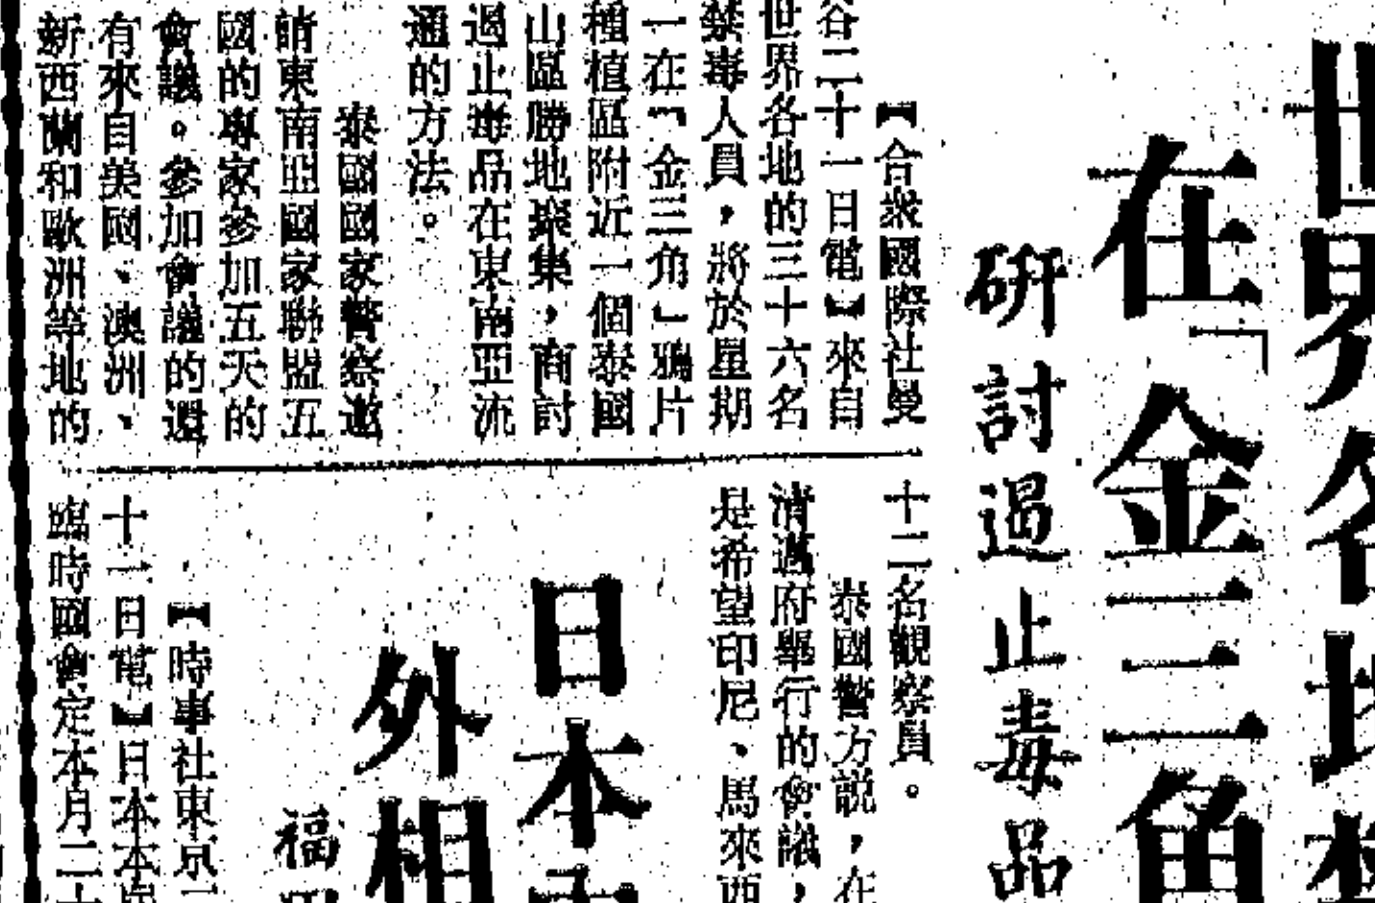 世界各地禁
在「金三角
研討遏止毒品
【合衆國際社曼
谷二十一日電】來自
世界各地的三十六名
禁毒人員，將於星期
一在「金三角」鴉片
種植區附近一個泰國
山區勝地聚集，商討
遏止毒品在東南亞流
通的方法。
泰國國家警察邀
請東南亞國家聯盟五
國的專家參加五天的
會議。參加會議的還
有來自美國、澳洲、
新西蘭和歐洲等地的
十二名觀察員。
泰國警方説，在
清邁府舉行的會議，
是希望印尼、馬來西
日本
外相
福田
【時事社東京二
十一日電】日本本
臨時國會定本月二十